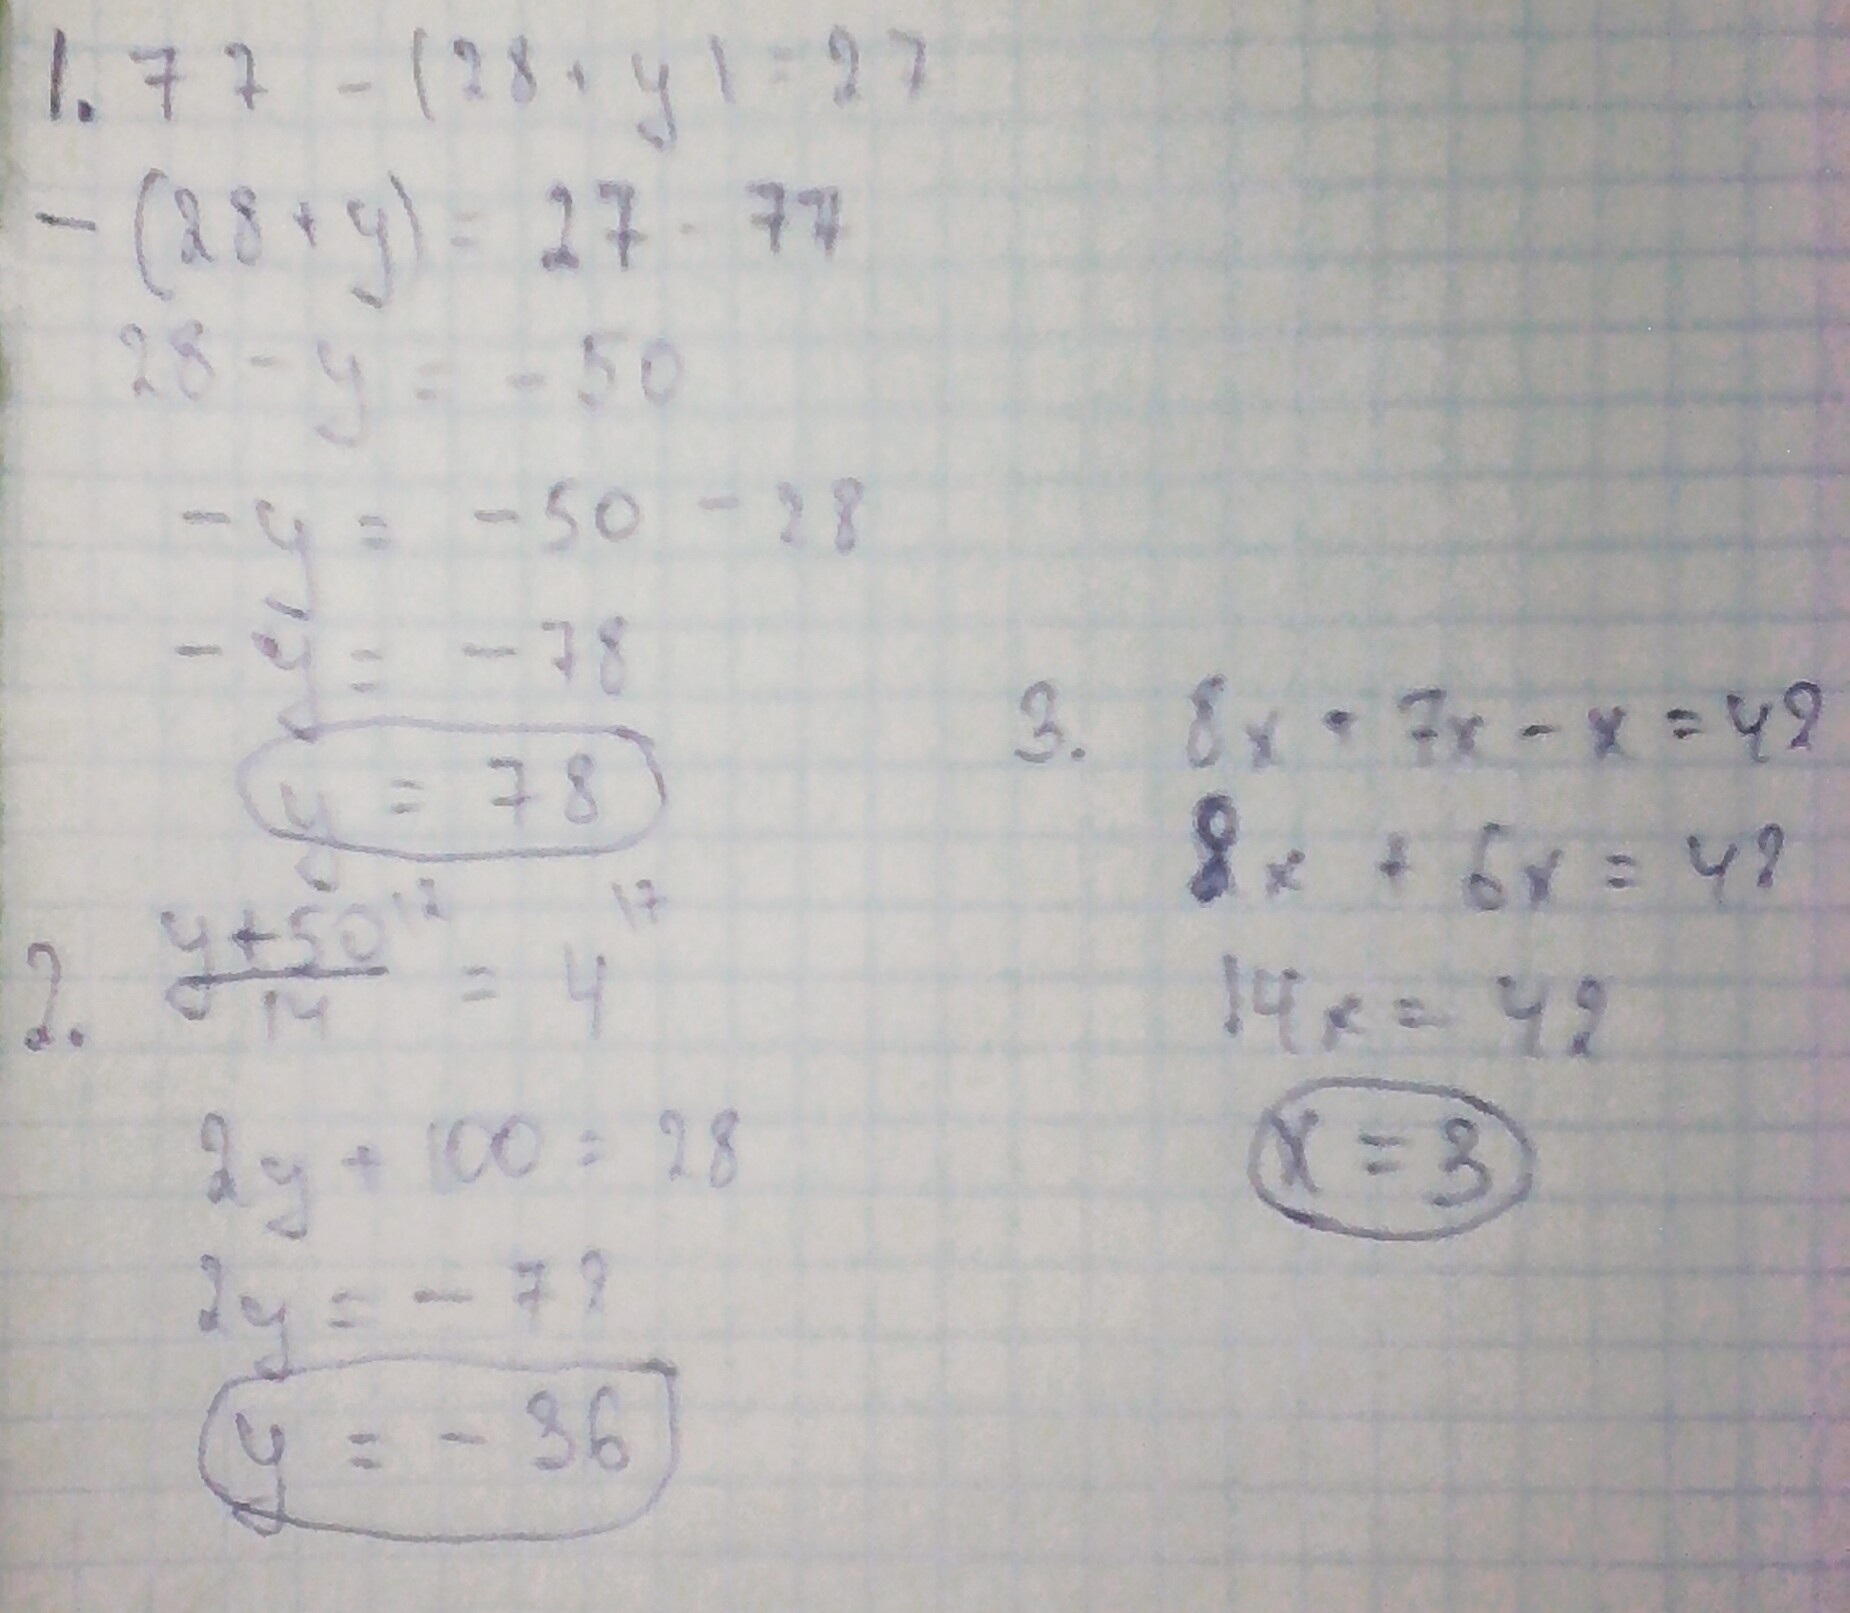 1. 77 - (28 + y) = 27
- (28 + y) = 27 - 77
28 - y = - 50
- y = - 50 - 28
- y = - 78
y = 78
2. y+50 /2 / 14 = 4 /7
2y + 100 = 28
2y = - 72
y = - 36
3. 8x + 7x - x = 42
8x + 6x = 42
14x = 42
x = 3